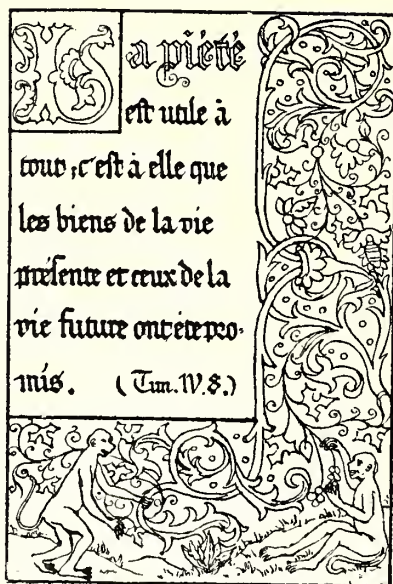 La piété
est utile à
tout, c'est à elle que
les biens de la vie
présente et ceux de la
vie future ont été pro-
mis. (Tim. IV. 8.)